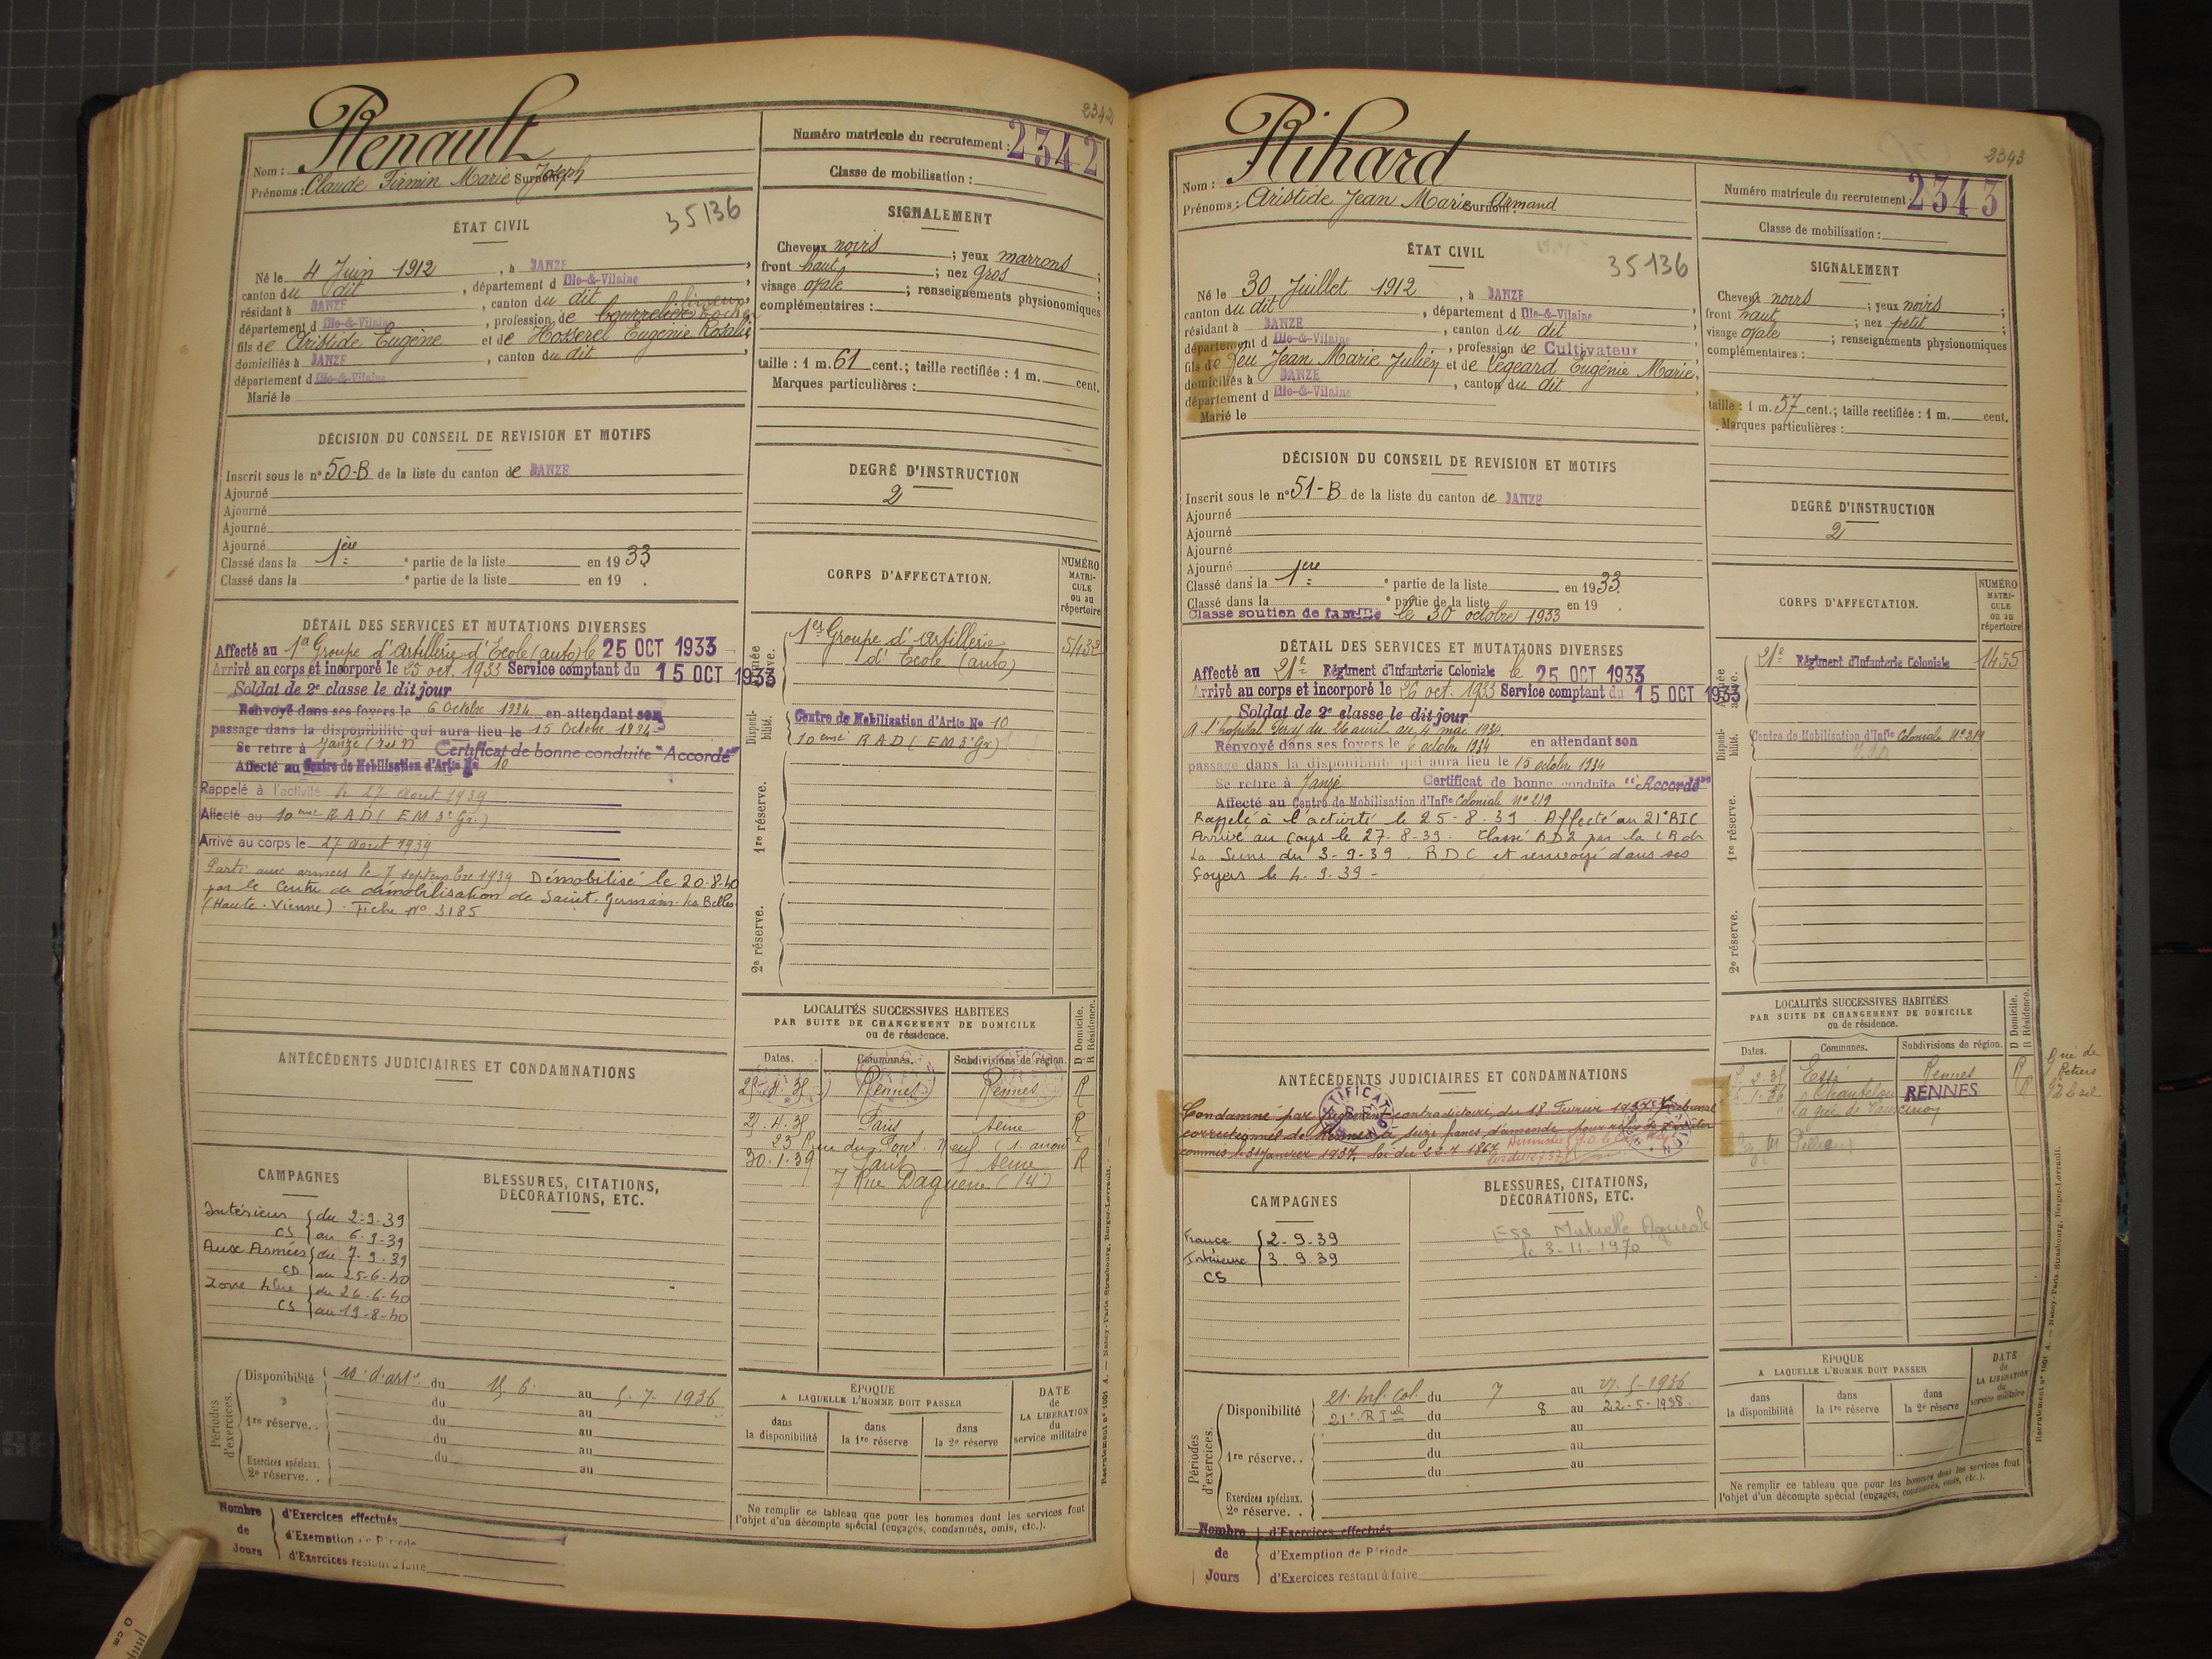 2342
Renault
Nom :
Prénoms : Claude Firmin Marie Joseph Surnom :
Numéro matricule du recrutement : 2342
Classe de mobilisation :
ÉTAT CIVIL
35136
Né le 4 Juin 1912, à JANZÉ
canton du dit, département d Ille-&-Vilaine
résidant à JANZÉ, canton du dit
département d Ille-&-Vilaine, profession de bourrelier
fils de Aristide Eugène et de Hosserel Eugénie Rosalie
domiciliés à JANZÉ, canton du dit
département d Ille-&-Vilaine
Marié le
SIGNALEMENT
Cheveux noirs ; yeux marrons ;
front haut ; nez gros ;
visage ovale ; renseignements physionomiques
complémentaires :
taille : 1 m. 61 cent.; taille rectifiée : 1 m. cent.
Marques particulières :
DÉCISION DU CONSEIL DE REVISION ET MOTIFS
Inscrit sous le n° 50-B de la liste du canton de JANZÉ
Ajourné
Ajourné
Ajourné
Ajourné
Classé dans la 1ère e partie de la liste en 1933
Classé dans la e partie de la liste en 19 .
DEGRÉ D'INSTRUCTION
2
DÉTAIL DES SERVICES ET MUTATIONS DIVERSES
Affecté au 1er Groupe d'Artillerie d'École (auto) le 25 OCT 1933
Arrivé au corps et incorporé le 25 oct. 1933 Service comptant du 15 OCT 1933
Soldat de 2e classe le dit jour
Renvoyé dans ses foyers le 6 Octobre 1934 en attendant son
passage dans la disponibilité qui aura lieu le 15 Octobre 1934
Se retire à Janzé Certificat de bonne conduite "Accordé"
Affecté au Centre de Mobilisation d'Artie No 10
Rappelé à l'activité le 27 Août 1939
Affecté au 10eme RAD (EM 3e Gr.)
Arrivé au corps le 27 Août 1939
Parti aux armées le 7 septembre 1939 Démobilisé le 20-8-40
par le Centre de démobilisation de Saint-Germain-les-Belles
(Haute-Vienne). Fiche No 3185
CORPS D'AFFECTATION.
NUMÉRO MATRI- CULE ou au répertoire
Armée active.
1er Groupe d'Artillerie
d'École (auto)
5432
Disponi- bilité.
Centre de Mobilisation d'Artie No 10
10eme RAD (EM 3e Gr)
1re réserve.
2e réserve.
ANTÉCÉDENTS JUDICIAIRES ET CONDAMNATIONS
LOCALITÉS SUCCESSIVES HABITÉES
PAR SUITE DE CHANGEMENT DE DOMICILE
ou de résidence.
D Domicile. R Résidence.
Dates. Communes. Subdivisions de région.
Rennes Rennes R
Paris Seine R
23 Rue du Pont Neuf (1. arron
30.1.39 Paris Seine R
7 Rue Daguerre (14)
CAMPAGNES
Intérieur du 2-9-39
CS au 6-9-39
Aux Armées du 7-9-39
CD au 25-6-40
Zone Libre du 26-6-40
CS au 19-8-40
BLESSURES, CITATIONS,
DÉCORATIONS, ETC.
Périodes d'exercices.
Disponibilité 10e d'art. du 15 6 au 5-7-1936
du au
1re réserve. . du au
du au
Exercices spéciaux. du au
2e réserve. . au
ÉPOQUE
A LAQUELLE L'HOMME DOIT PASSER
dans la disponibilité
dans la 1re réserve
dans la 2e réserve
DATE de LA LIBÉRATION du service militaire
Ne remplir ce tableau que pour les hommes dont les services font
l'objet d'un décompte spécial (engagés, condamnés, omis, etc.).
Nombre de Jours
d'Exercices effectués
d'Exemption de Période
d'Exercices restant à faire
2343
Rihard
Nom :
Prénoms : Aristide Jean Marie Armand Surnom :
Numéro matricule du recrutement : 2343
Classe de mobilisation :
ÉTAT CIVIL
35136
Né le 30 Juillet 1912, à JANZÉ
canton du dit, département d Ille-&-Vilaine
résidant à JANZÉ, canton du dit
département d Ille-&-Vilaine, profession de Cultivateur
fils de feu Jean Marie Julien et de Legeard Eugénie Marie,
domiciliés à JANZÉ, canton du dit
département d Ille-&-Vilaine
Marié le
SIGNALEMENT
Cheveux noirs ; yeux noirs ;
front haut ; nez petit ;
visage ovale ; renseignements physionomiques
complémentaires :
taille : 1 m. 57 cent.; taille rectifiée : 1 m. cent.
Marques particulières :
DÉCISION DU CONSEIL DE REVISION ET MOTIFS
Inscrit sous le n° 51-B de la liste du canton de JANZÉ
Ajourné
Ajourné
Ajourné
Ajourné
Classé dans la 1ère e partie de la liste en 1933.
Classé dans la e partie de la liste en 19 .
Classé soutien de famille le 30 octobre 1933
DEGRÉ D'INSTRUCTION
2
DÉTAIL DES SERVICES ET MUTATIONS DIVERSES
Affecté au 21e Régiment d'Infanterie Coloniale le 25 OCT 1933
Arrivé au corps et incorporé le 26 oct. 1933 Service comptant du 15 OCT 1933
Soldat de 2e classe le dit jour
A l'hôpital Percy du 26 avril au 4 mai 1934.
Renvoyé dans ses foyers le 6 octobre 1934 en attendant son
passage dans la disponibilité qui aura lieu le 15 octobre 1934
Se retire à Janzé Certificat de bonne conduite "Accordé"
Affecté au Centre de Mobilisation d'Infie Coloniale No 219
Rappelé à l'activité le 25-8-39. Affecté au 21e RIC
Arrivé au corps le 27-8-39. Classé RD2 par la CR de
La Seine du 3-9-39. RDC et renvoyé dans ses
foyers le 4-9-39-
CORPS D'AFFECTATION.
NUMÉRO MATRI- CULE ou au répertoire
Armée active.
21e Régiment d'Infanterie Coloniale
1455
Disponi- bilité.
Centre de Mobilisation d'Infie Coloniale No 219
1re réserve.
2e réserve.
ANTÉCÉDENTS JUDICIAIRES ET CONDAMNATIONS
Condamné par jugement contradictoire du 18 Février 1937 Tribunal
correctionnel de Rennes à seize francs d'amende pour
commis le 31 Janvier 1937, loi du 22-7-1867
LOCALITÉS SUCCESSIVES HABITÉES
PAR SUITE DE CHANGEMENT DE DOMICILE
ou de résidence.
D Domicile. R Résidence.
Dates. Communes. Subdivisions de région.
Essé Rennes R
Chanteloup RENNES R
CAMPAGNES
France 2-9-39
Intérieur 3-9-39
CS
BLESSURES, CITATIONS,
DÉCORATIONS, ETC.
ESS Mutuelle Agricole
le 3-11-1970
Périodes d'exercices.
Disponibilité 21e Inf. Col. du 7 au 27-5-1936
21e R I Col du 8 au 22-5-1938.
du au
1re réserve. . du au
du au
Exercices spéciaux.
2e réserve. .
ÉPOQUE
A LAQUELLE L'HOMME DOIT PASSER
dans la disponibilité
dans la 1re réserve
dans la 2e réserve
DATE de LA LIBÉRATION du service militaire
Ne remplir ce tableau que pour les hommes dont les services font
l'objet d'un décompte spécial (engagés, condamnés, omis, etc.).
Nombre de Jours
d'Exercices effectués
d'Exemption de Période
d'Exercices restant à faire
0 cm